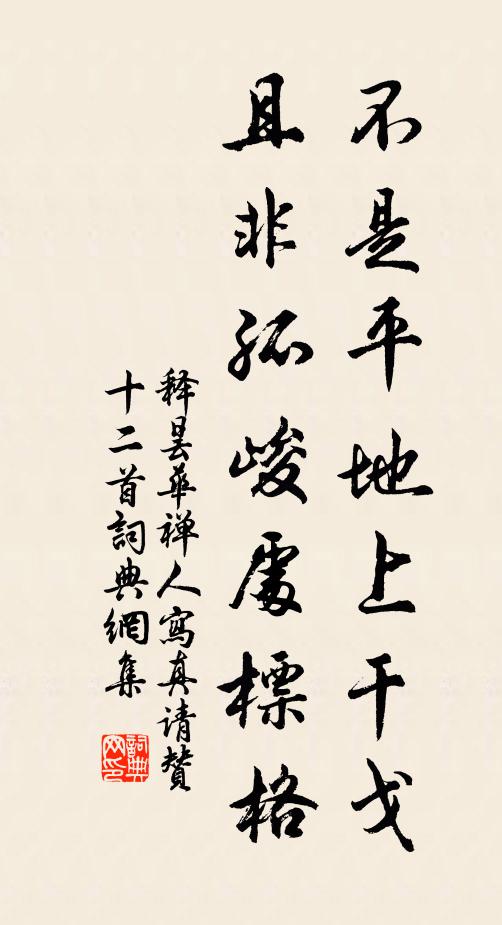 不是平地上干戈
且非孤峻處標格
释曇華禅人寫真请贊
十二首詞典網集
詞典
网印